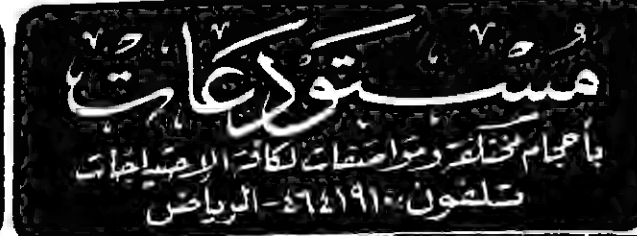 مُسْتَودَعَات
بأحجام مختلفة ومواصفات لكافة الاحتياجات
تلفون: ٤٦٤١٩١٠ - الرياض